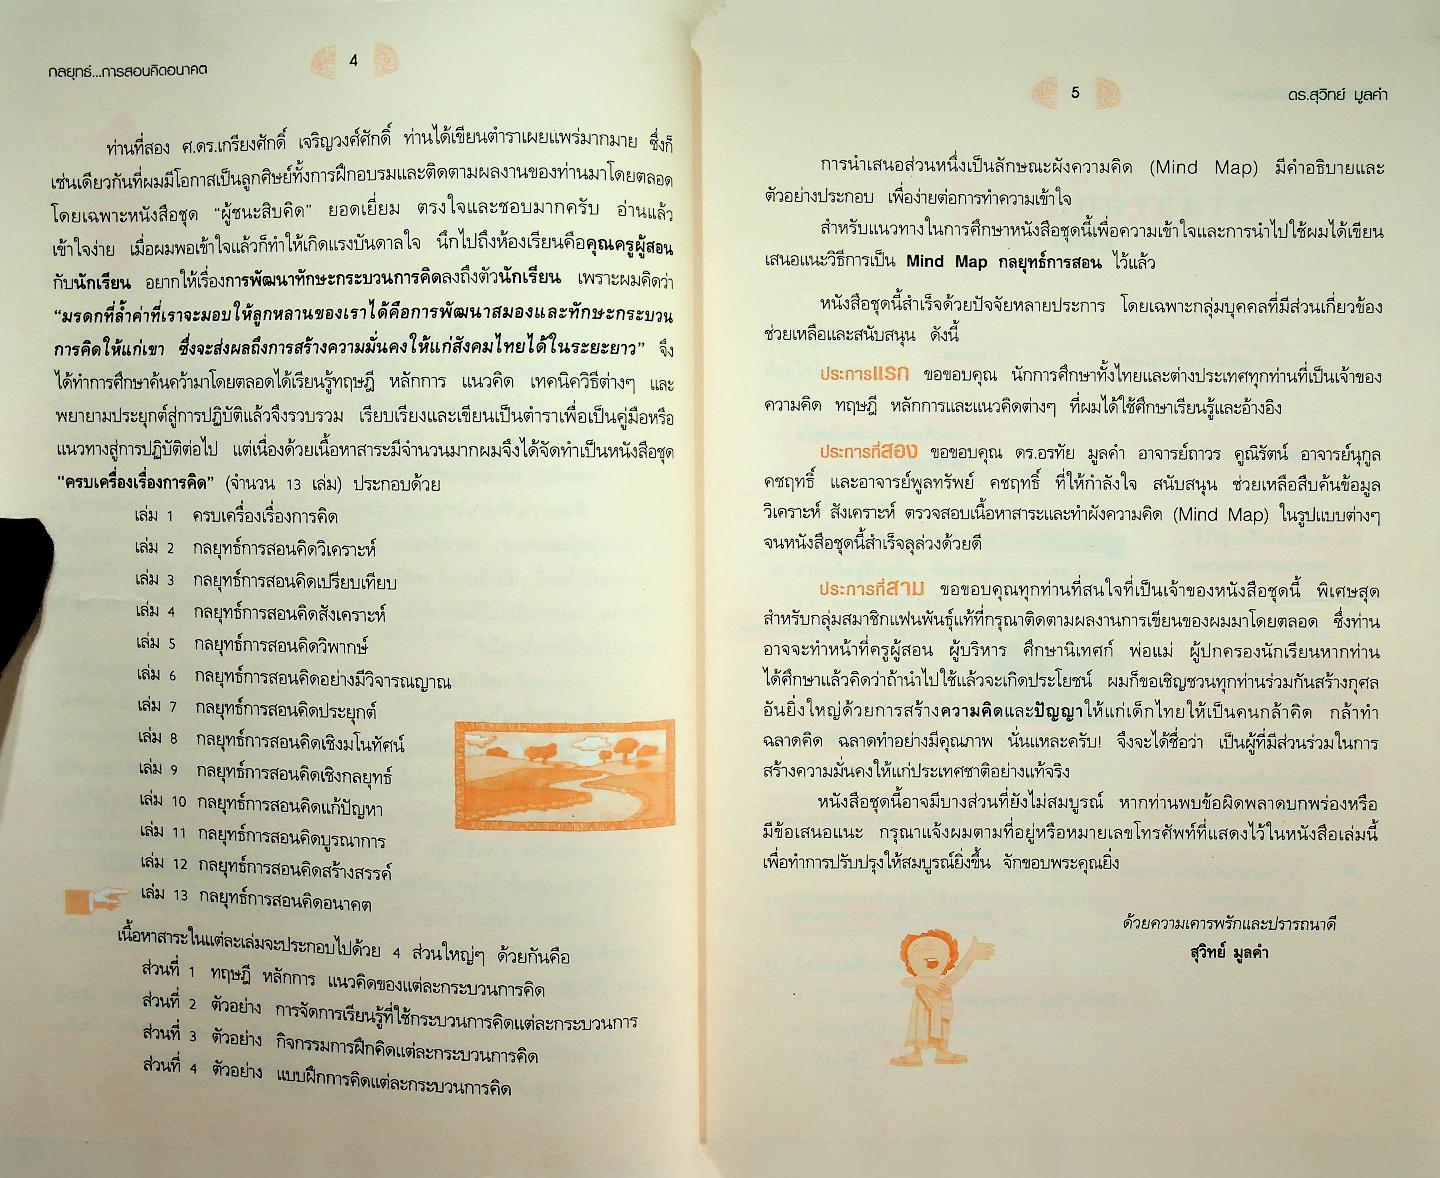 กลยุทธ์...การสอนคิดอนาคต
4
ท่านที่สอง ศ.ดร.เกรียงศักดิ์ เจริญวงศ์ศักดิ์ ท่านได้เขียนตำราเผยแพร่มากมาย ซึ่งก็
เช่นเดียวกันที่ผมมีโอกาสเป็นลูกศิษย์ทั้งการฝึกอบรมและติดตามผลงานของท่านมาโดยตลอด
โดยเฉพาะหนังสือชุด “ผู้ชนะสิบคิด” ยอดเยี่ยม ตรงใจและชอบมากครับ อ่านแล้ว
เข้าใจง่าย เมื่อผมพอเข้าใจแล้วก็ทำให้เกิดแรงบันดาลใจ นึกไปถึงห้องเรียนคือคุณครูผู้สอน
กับนักเรียน อยากให้เรื่องการพัฒนาทักษะกระบวนการคิดลงถึงตัวนักเรียน เพราะผมคิดว่า
“มรดกที่ล้ำค่าที่เราจะมอบให้ลูกหลานของเราได้คือการพัฒนาสมองและทักษะกระบวน
การคิดให้แก่เขา ซึ่งจะส่งผลถึงการสร้างความมั่นคงให้แก่สังคมไทยได้ในระยะยาว” จึง
ได้ทำการศึกษาค้นคว้ามาโดยตลอดได้เรียนรู้ทฤษฎี หลักการ แนวคิด เทคนิควิธีต่างๆ และ
พยายามประยุกต์สู่การปฏิบัติแล้วจึงรวบรวม เรียบเรียงและเขียนเป็นตำราเพื่อเป็นคู่มือหรือ
แนวทางสู่การปฏิบัติต่อไป แต่เนื่องด้วยเนื้อหาสาระมีจำนวนมากผมจึงได้จัดทำเป็นหนังสือชุด
“ครบเครื่องเรื่องการคิด” (จำนวน 13 เล่ม) ประกอบด้วย
เล่ม 1 ครบเครื่องเรื่องการคิด
เล่ม 2 กลยุทธ์การสอนคิดวิเคราะห์
เล่ม 3 กลยุทธ์การสอนคิดเปรียบเทียบ
เล่ม 4 กลยุทธ์การสอนคิดสังเคราะห์
เล่ม 5 กลยุทธ์การสอนคิดวิพากษ์
เล่ม 6 กลยุทธ์การสอนคิดอย่างมีวิจารณญาณ
เล่ม 7 กลยุทธ์การสอนคิดประยุกต์
เล่ม 8 กลยุทธ์การสอนคิดเชิงมโนทัศน์
เล่ม 9 กลยุทธ์การสอนคิดเชิงกลยุทธ์
เล่ม 10 กลยุทธ์การสอนคิดแก้ปัญหา
เล่ม 11 กลยุทธ์การสอนคิดบูรณาการ
เล่ม 12 กลยุทธ์การสอนคิดสร้างสรรค์
เล่ม 13 กลยุทธ์การสอนคิดอนาคต
เนื้อหาสาระในแต่ละเล่มจะประกอบไปด้วย 4 ส่วนใหญ่ๆ ด้วยกันคือ
ส่วนที่ 1 ทฤษฎี หลักการ แนวคิดของแต่ละกระบวนการคิด
ส่วนที่ 2 ตัวอย่าง การจัดการเรียนรู้ที่ใช้กระบวนการคิดแต่ละกระบวนการ
ส่วนที่ 3 ตัวอย่าง กิจกรรมการฝึกคิดแต่ละกระบวนการคิด
ส่วนที่ 4 ตัวอย่าง แบบฝึกการคิดแต่ละกระบวนการคิด
5
ดร.สุวิทย์ มูลคำ
การนำเสนอส่วนหนึ่งเป็นลักษณะผังความคิด (Mind Map) มีคำอธิบายและ
ตัวอย่างประกอบ เพื่อง่ายต่อการทำความเข้าใจ
สำหรับแนวทางในการศึกษาหนังสือชุดนี้เพื่อความเข้าใจและการนำไปใช้ผมได้เขียน
เสนอแนะวิธีการเป็น Mind Map กลยุทธ์การสอน ไว้แล้ว
หนังสือชุดนี้สำเร็จด้วยปัจจัยหลายประการ โดยเฉพาะกลุ่มบุคคลที่มีส่วนเกี่ยวข้อง
ช่วยเหลือและสนับสนุน ดังนี้
ประการแรก ขอขอบคุณ นักการศึกษาทั้งไทยและต่างประเทศทุกท่านที่เป็นเจ้าของ
ความคิด ทฤษฎี หลักการและแนวคิดต่างๆ ที่ผมได้ใช้ศึกษาเรียนรู้และอ้างอิง
ประการที่สอง ขอขอบคุณ ดร.อรทัย มูลคำ อาจารย์ถาวร คูณิรัตน์ อาจารย์นุกูล
คชฤทธิ์ และอาจารย์พูลทรัพย์ คชฤทธิ์ ที่ให้กำลังใจ สนับสนุน ช่วยเหลือสืบค้นข้อมูล
วิเคราะห์ สังเคราะห์ ตรวจสอบเนื้อหาสาระและทำผังความคิด (Mind Map) ในรูปแบบต่างๆ
จนหนังสือชุดนี้สำเร็จลุล่วงด้วยดี
ประการที่สาม ขอขอบคุณทุกท่านที่สนใจที่เป็นเจ้าของหนังสือชุดนี้ พิเศษสุด
สำหรับกลุ่มสมาชิกแฟนพันธุ์แท้ที่กรุณาติดตามผลงานการเขียนของผมมาโดยตลอด ซึ่งท่าน
อาจจะทำหน้าที่ครูผู้สอน ผู้บริหาร ศึกษานิเทศก์ พ่อแม่ ผู้ปกครองนักเรียนหากท่าน
ได้ศึกษาแล้วคิดว่าถ้านำไปใช้แล้วจะเกิดประโยชน์ ผมก็ขอเชิญชวนทุกท่านร่วมกันสร้างกุศล
อันยิ่งใหญ่ด้วยการสร้างความคิดและปัญญาให้แก่เด็กไทยให้เป็นคนกล้าคิด กล้าทำ
ฉลาดคิด ฉลาดทำอย่างมีคุณภาพ นั่นแหละครับ! จึงจะได้ชื่อว่า เป็นผู้ที่มีส่วนร่วมในการ
สร้างความมั่นคงให้แก่ประเทศชาติอย่างแท้จริง
หนังสือชุดนี้อาจมีบางส่วนที่ยังไม่สมบูรณ์ หากท่านพบข้อผิดพลาดบกพร่องหรือ
มีข้อเสนอแนะ กรุณาแจ้งผมตามที่อยู่หรือหมายเลขโทรศัพท์ที่แสดงไว้ในหนังสือเล่มนี้
เพื่อทำการปรับปรุงให้สมบูรณ์ยิ่งขึ้น จักขอบพระคุณยิ่ง
ด้วยความเคารพรักและปรารถนาดี
สุวิทย์ มูลคำ